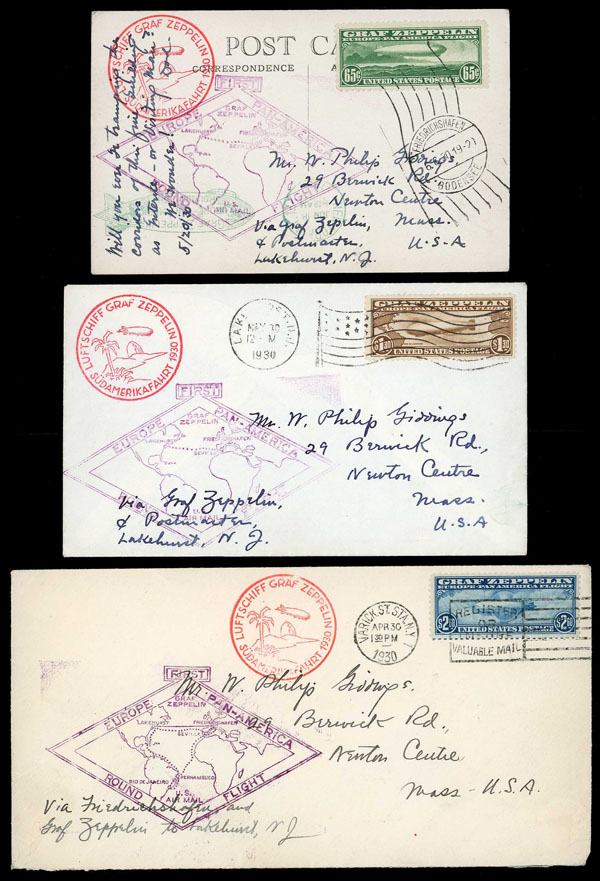 POST CA
CORRESPONDENCE A
LUFTSCHIFF GRAF ZEPPELIN
SÜDAMERIKAFAHRT 1930
GRAF ZEPPELIN
EUROPE-PAN AMERICA FLIGHT
65¢ 65¢
UNITED STATES POSTAGE
FRIEDRICHSHAFEN
19-21
BODENSEE
FIRST
EUROPE PAN-AMERICA
GRAF
ZEPPELIN
LAKEHURST
SEVILLA
ROUND FLIGHT
U.S.
AIR MAIL
Will you ever be tramping the
corridors of this fine building
as Interne - or
Visiting Man?
We wonder!
5/20/30
Mr. W. Philip Giddings
29 Berwick Rd.
Newton Centre
Mass.
U.S.A
Via Graf Zepelin,
& Postmaster,
Lakehurst, N.J.
LUFTSCHIFF GRAF ZEPPELIN
SÜDAMERIKAFAHRT 1930
MAY 30
12 M
1930
GRAF ZEPPELIN
EUROPE-PAN AMERICA FLIGHT
$1.30 $1.30
UNITED STATES POSTAGE
FIRST
EUROPE PAN-AMERICA
GRAF
ZEPPELIN
LAKEHURST
FRIEDRICHSHAFEN
SEVILLA
AIR MAIL
Mr. W. Philip Giddings
29 Berwick Rd.,
Newton Centre
Mass.
U.S.A
Via Graf Zeppelin,
& Postmaster,
Lakehurst, N. J.
LUFTSCHIFF GRAF ZEPPELIN
SÜDAMERIKAFAHRT 1930
VARICK ST. STA. N.Y.
APR 30
PM
1930
GRAF ZEPPELIN
EUROPE-PAN AMERICA FLIGHT
$2.60 $2.60
UNITED STATES POSTAGE
REGISTER
OR
VALUABLE MAIL
FIRST
EUROPE PAN-AMERICA
GRAF
ZEPPELIN
LAKEHURST
FRIEDRICHSHAFEN
SEVILLA
RIO DE JANEIRO
PERNAMBUCO
U.S.
AIR MAIL
ROUND FLIGHT
Mr. W. Philip Giddings.
29 Berwick Rd.,
Newton Centre
Mass - U.S.A.
Via Friedrichshafen, and
Graf Zeppelin to Lakehurst, N J